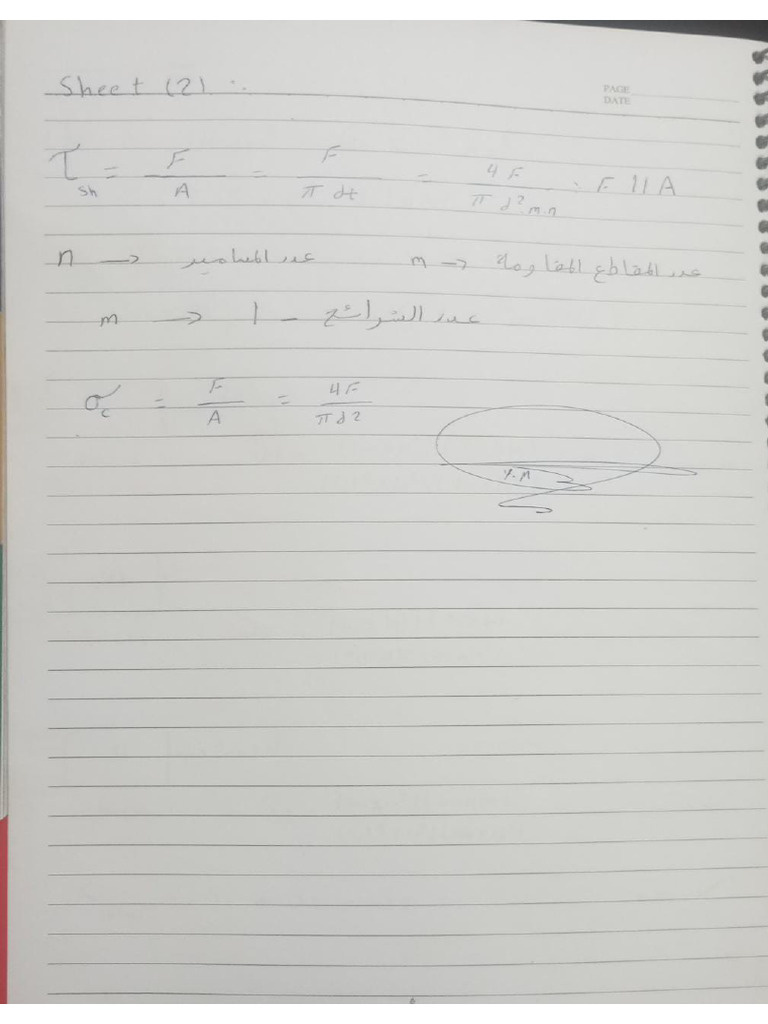 Sheet (2) :.
PAGE
DATE
τsh = F/A = F/π dt = 4F/π d² m.n . F || A
n → عدد المسامير m → عدد المقاطع المقاومة
m → عدد الشرائح - 1
σc = F/A = 4F/πd2